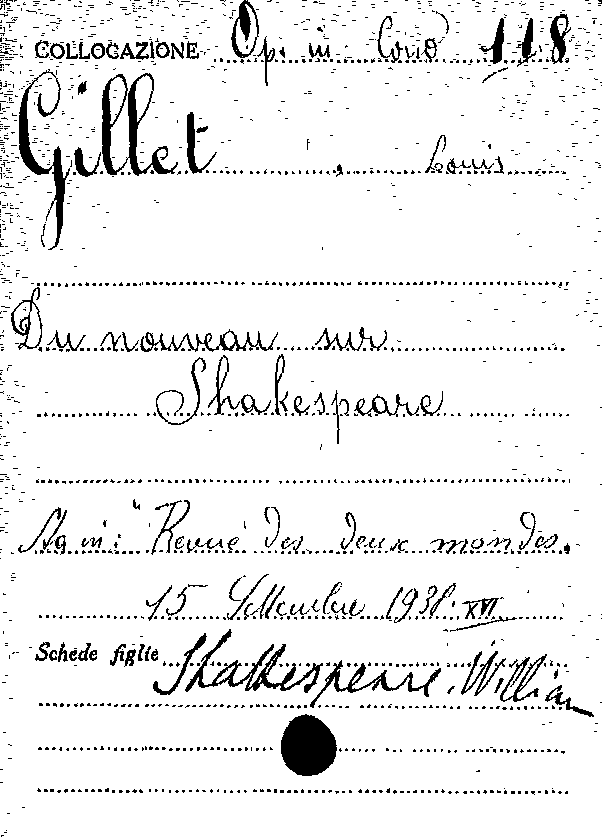 COLLOCAZIONE Op. in Cons 118
Gillet, Louis
Du nouveau sur
Shakespeare
in: "Revue des deux mondes.
15 Settembre 1938. XVI
Schede figlie Shakespeare. William